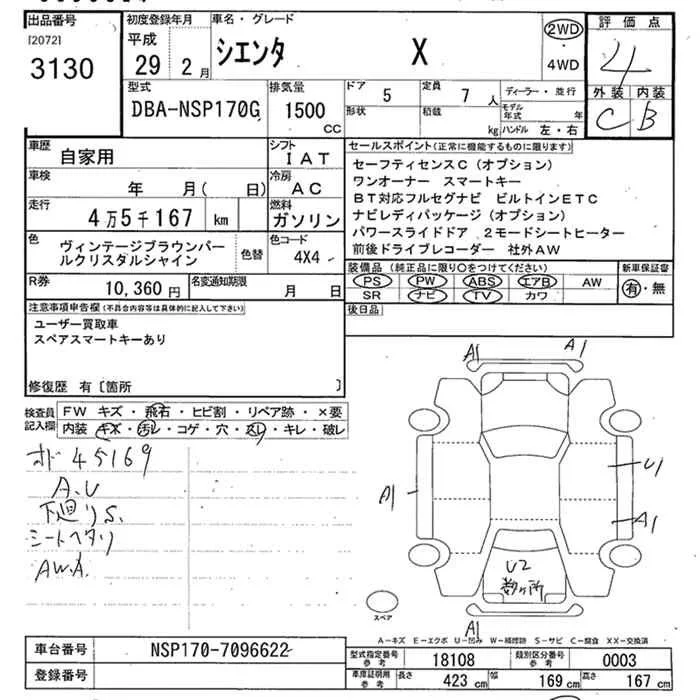 出品番号
[2072]
3130
初度登録年月
平成
29 2月
車名・グレード
シエンタ X
2WD
・
4WD
評価点
4
外装 内装
C B
型式
DBA-NSP170G
排気量
1500
CC
ドア 5
定員 7 人
形状
積載 kg
ディーラー・並行
モデル年式 年
ハンドル 左・右
車歴
自家用
シフト
IAT
車検
年 月( 日)
冷房
AC
走行
4万5千167 km
燃料
ガソリン
色
ヴィンテージブラウンパー
ルクリスタルシャイン
色替
色コード
4X4
R券
10,360 円
名変通知期限
月 日
セールスポイント(正常に機能するものに限ります)
セーフティセンスC(オプション)
ワンオーナー スマートキー
BT対応フルセグナビ ビルトインETC
ナビレディパッケージ(オプション)
パワースライドドア 2モードシートヒーター
前後ドライブレコーダー 社外AW
装備品(純正品に限り○をつけてください)
PS PW ABS エアB AW
SR ナビ TV カワ
新車保証書
有・無
後日品
注意事項申告欄(不具合内容等は具体的に記入して下さい)
ユーザー買取車
スペアスマートキーあり
修復歴 有〔箇所 〕
検査員
記入欄
FW キズ・飛石・ヒビ割・リペア跡・×要
内装 キズ・汚レ・コゲ・穴・スレ・キレ・破レ
オド 45169
A.U
下廻りS.
シートヘタリ
AW.A.
A1
A1
A1
U1
A1
U2
数ヶ所
A1
スペア
A-キズ E-エクボ U-凹み W-補修跡 S-サビ C-腐食 XX-交換済
車台番号
NSP170-7096622
登録番号
型式指定番号
参考
18108
類別区分番号
参考
0003
車庫証明用
参考
長さ 423 cm
幅 169 cm
高さ 167 cm